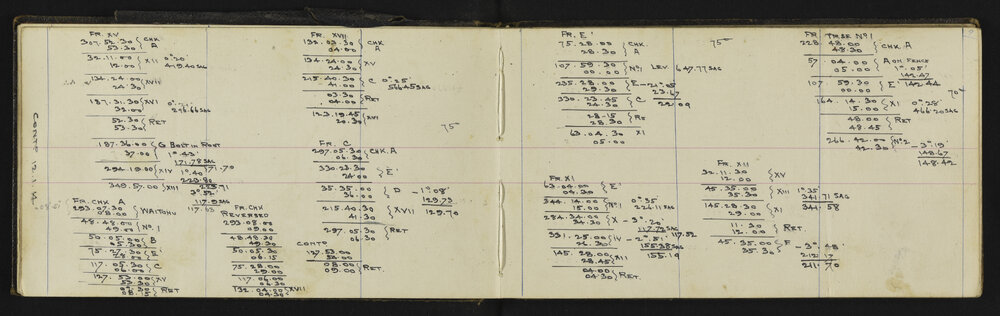 FR. XV
307.52.30 } CHK
53.30 } A
32.11.00 } XII 0°20'
12.00 419.40 SAG
134.24.00 } XVII
24.30
187.31.30 } XVI
32.00 276.66 SAG
52.30 } RET
53.30
187.36.00 } G BOLT IN ROOT
37.00 1°43'
171.78 SAG
294.19.00 } XIV 171.70
1°40'
223.80
349.57.00 } XIII 223.71
3°52'
117.9 SAG
117.63
CONTD 12.11.14.
FR. CHK A
293.07.30 } WAITOHU
08.00
48.48.00 } No. 1
49.00
50.05.00 } B
05.30
75.27.30 } E
28.00
117.05.30 } C
06.00
127.53.00 } XV
53.30
07.30 } RET
08.15
FR. CHK
REVERSED
293.08.00
09.00
48.48.30
49.30
50.05.30
06.15
75.28.00
29.00
117.06.00
06.30
132.04.00 } XVII
04.30
FR. XVII
132.03.30 } CHK
04.00 } A
134.24.00 } XV
24.30
215.40.30 } C 0°25'
41.00 564.45 SAG
03.30 } RET
04.00
123.19.45 } XVI
20.30
75
FR. C
297.05.30 } CHK. A
06.30
330.23.30 } E'
24.00
35.35.00 } D - 1°08'
36.00 129.73
215.40.30 } XVII 129.70
41.30
297.05.30 } RET
06.30
CONTD
127.53.00
54.00
08.00 } RET.
09.00
FR. E'
75.28.00 } CHK.
28.30 } A
75
107.59.30 } No1 LEV. 647.77 SAG
00.00
235.28.00 } E - 21°05'
29.30 23.67
330.23.45 } C 22.09
24.30
28.15 } RE
28.30
63.04.30 XI
05.00
FR XI
63.04.00 } E'
04.30
344.14.00 } No1 0°25'
15.00 224.11 SAG
284.34.00 } X - 3°20'
34.30 117.72 SAG
117.52
331.25.00 } IV - 2°51'
26.30 155.38 SAG
145.28.00 } XII 155.19
28.45
04.00 } RET.
04.30
FR. XII
32.11.30 } XV
12.00
45.35.00 } XIII 1°35'
35.30 341.71 SAG
341.58
145.28.30 } XI
29.00
11.30 } RET.
12.30
45.35.00 } F - 3°48'
35.30 212.17
211.70
FR TRSE No1
228.48.00 } CHK. A
48.30
57.04.00 } A ON FENCE
05.00 1°05'
142.47
107.59.30 } E' 142.44
00.00
70
164.14.30 } XI 0°28'
15.00 466.20 SAG
48.00 } RET
48.45
266.42.00 } No2 - 3°19'
42.30 148.67
148.42